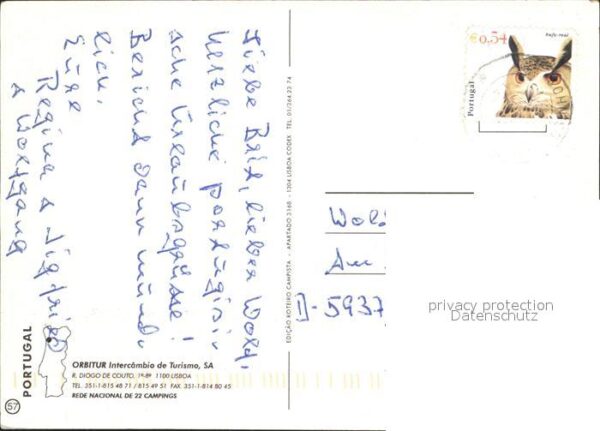 Liebe Brit, lieber Wolf,
herzliche portugisi-
sche Urlaubsgrüsse!
Bericht dann münd-
lich.
Eure
Regina & Sigfried
& Wolfgang
€0,54
bufo-real
Portugal
Am
D-5937
privacy protection
Datenschutz
EDIÇÃO ROTEIRO CAMPISTA - APARTADO 3168 - 1304 LISBOA CODEX TEL. 01/364 23 74
PORTUGAL
57
ORBITUR Intercâmbio de Turismo, SA
R. DIOGO DE COUTO, 1º-8º 1100 LISBOA
TEL. 351-1-815 48 71 / 815 49 51 FAX. 351-1-814 80 45
REDE NACIONAL DE 22 CAMPINGS